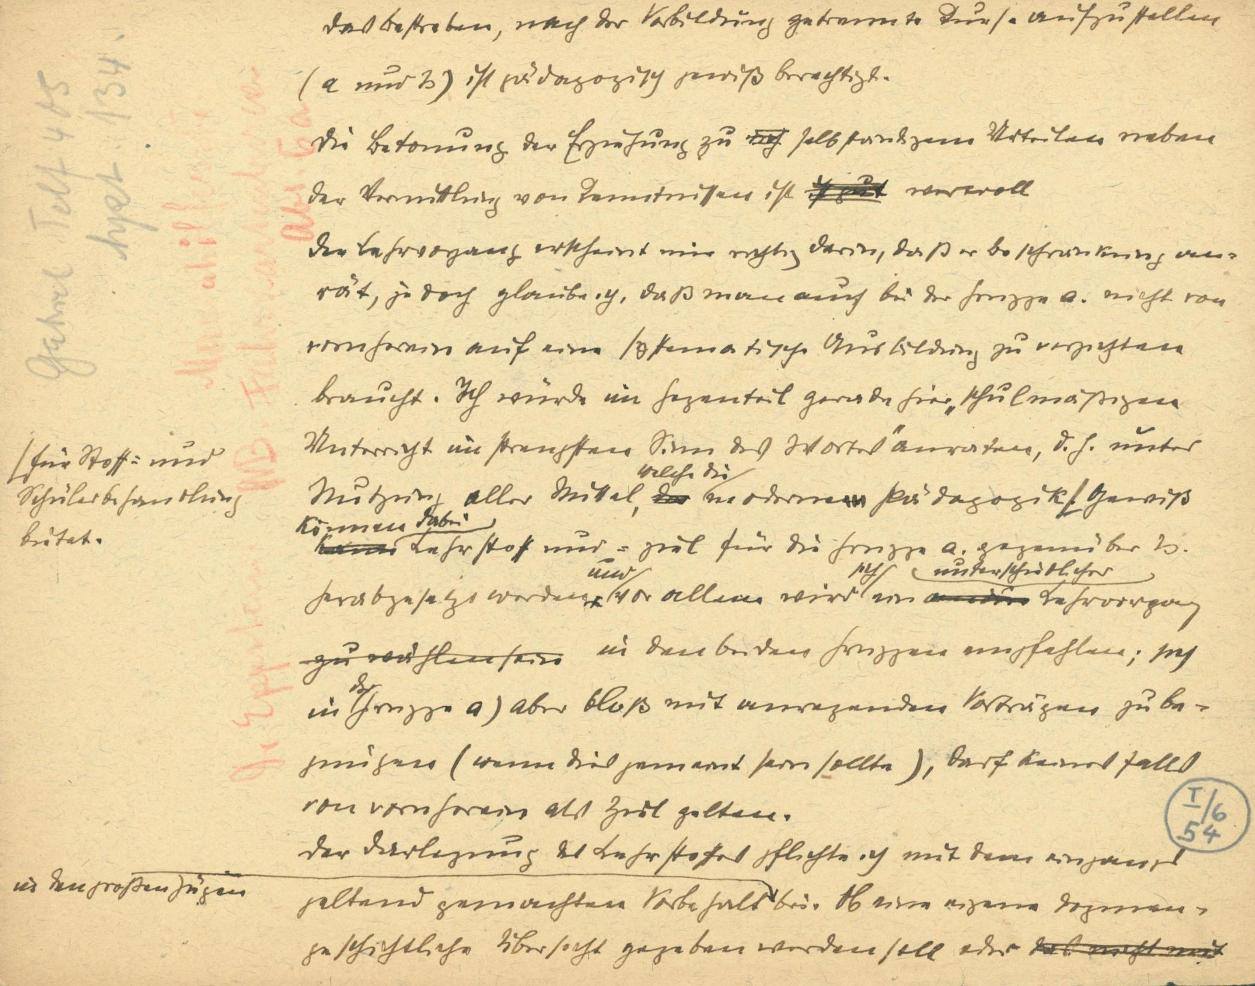 Das Bestreben, nach der Vorbildung getrennte Kurse aufzustellen
(a und b) ist pädagogisch gewiß berechtigt.
Die Betonung der Erziehung zu selbständigem Urteilen neben
der Vermittlung von Kenntnissen ist ist gut wertvoll
Der Lehrvorgang erscheint mir richtig darin, daß er Beschränkung an=
rät, jedoch glaube ich, daß man auch bei der Gruppe a. nicht von
vornherein auf eine systematische Ausbildung zu verzichten
braucht. Ich würde im Gegenteil gerade hier „schulmäßigen
Unterricht im strengsten Sinn des Wortes" anraten, d.h. unter
welche die
Nutzung aller Mittel, der modernen Pädagogik/ Gewiß
/für Stoff= und
Schülerbehandlung
bietet.
können dabei
kann Lehrstoff und =ziel für die Gruppe a. gegenüber b.
und sich unterschiedlicher
herabgesetzt werden, vor allem wird ein Lehrvorgang
zu wählen sein in den beiden Gruppen empfehlen; sich
der
in Gruppe a) aber bloß mit anregenden Vorträgen zu be=
gnügen (wenn dies gemeint sein sollte), darf keinesfalls
von vornherein als Ziel gelten.
Der Darlegung des Lehrstoffes pflichte ich mit dem eingangs
in den großen Zügen
geltend gemachten Vorbehalt bei. Ob eine eigene dogmen=
geschichtliche Übersicht gegeben werden soll oder das nicht mit
I/6
54